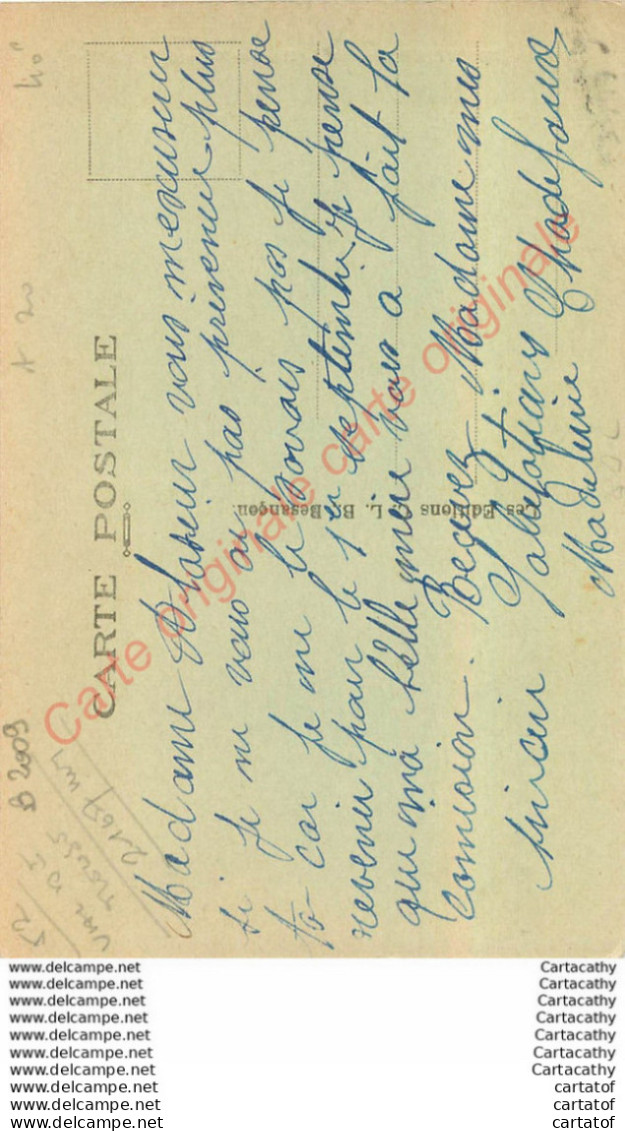 CARTE POSTALE
Madame Monsieur vous mexcuseri
si je ne vous ai pas prévenir plus
to car je ne le sovais pas je pense
revenir pour le 1er septembre je pense
que ma bélle mere vous a fait la
comision. Recevez Madame mes
sinceir Salutations
Madeleine
Les Editions C. L. B. Besançon
Carte originale carte originale
B 2009
A 20
52
www.delcampe.net
www.delcampe.net
www.delcampe.net
www.delcampe.net
www.delcampe.net
www.delcampe.net
www.delcampe.net
www.delcampe.net
www.delcampe.net
www.delcampe.net
Cartacathy
Cartacathy
Cartacathy
Cartacathy
Cartacathy
Cartacathy
Cartacathy
cartatof
cartatof
cartatof